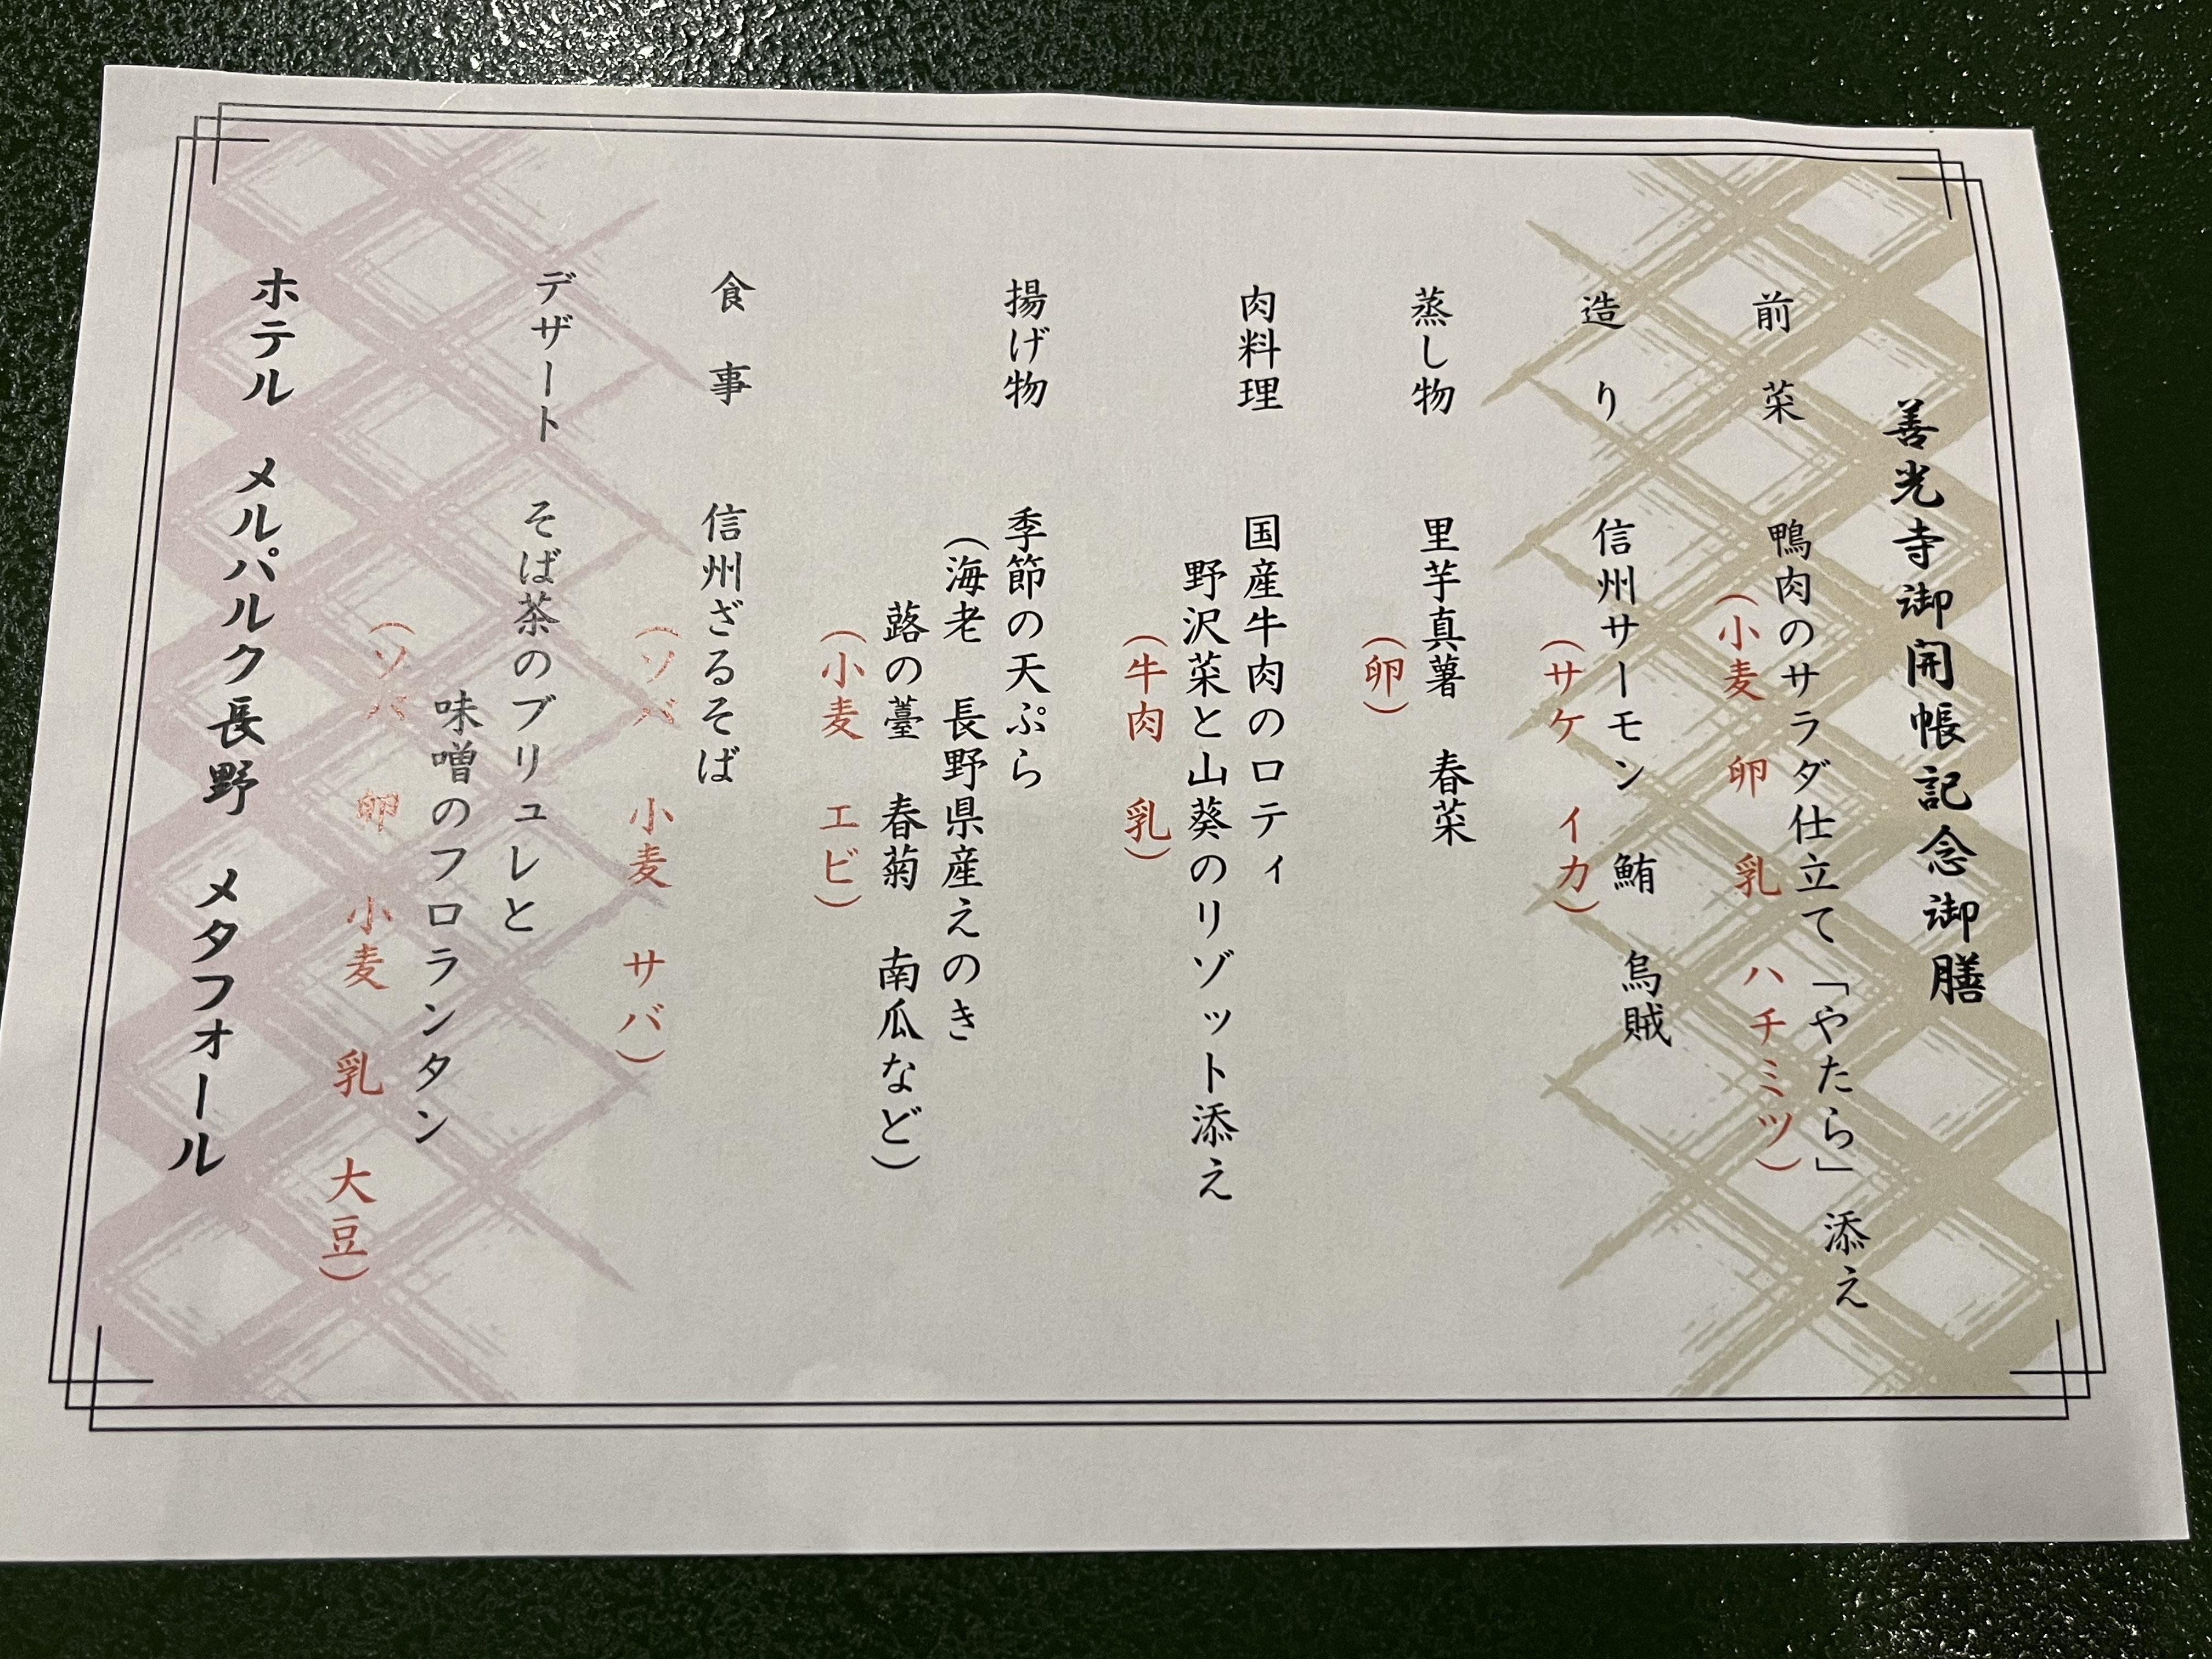 善光寺御開帳記念御膳
前菜 鴨肉のサラダ仕立て「やたら」添え
（小麦 卵 乳 ハチミツ）
造り 信州サーモン 鮪 烏賊
（サケ イカ）
蒸し物 里芋真薯 春菜
（卵）
肉料理 国産牛肉のロティ
野沢菜と山葵のリゾット添え
（牛肉 乳）
揚げ物 季節の天ぷら
（海老 長野県産えのき
蕗の薹 春菊 南瓜など）
（小麦 エビ）
食事 信州ざるそば
（ソバ 小麦 サバ）
デザート そば茶のブリュレと
味噌のフロランタン
（ソバ 卵 小麦 乳 大豆）
ホテル メルパルク長野 メタフォール